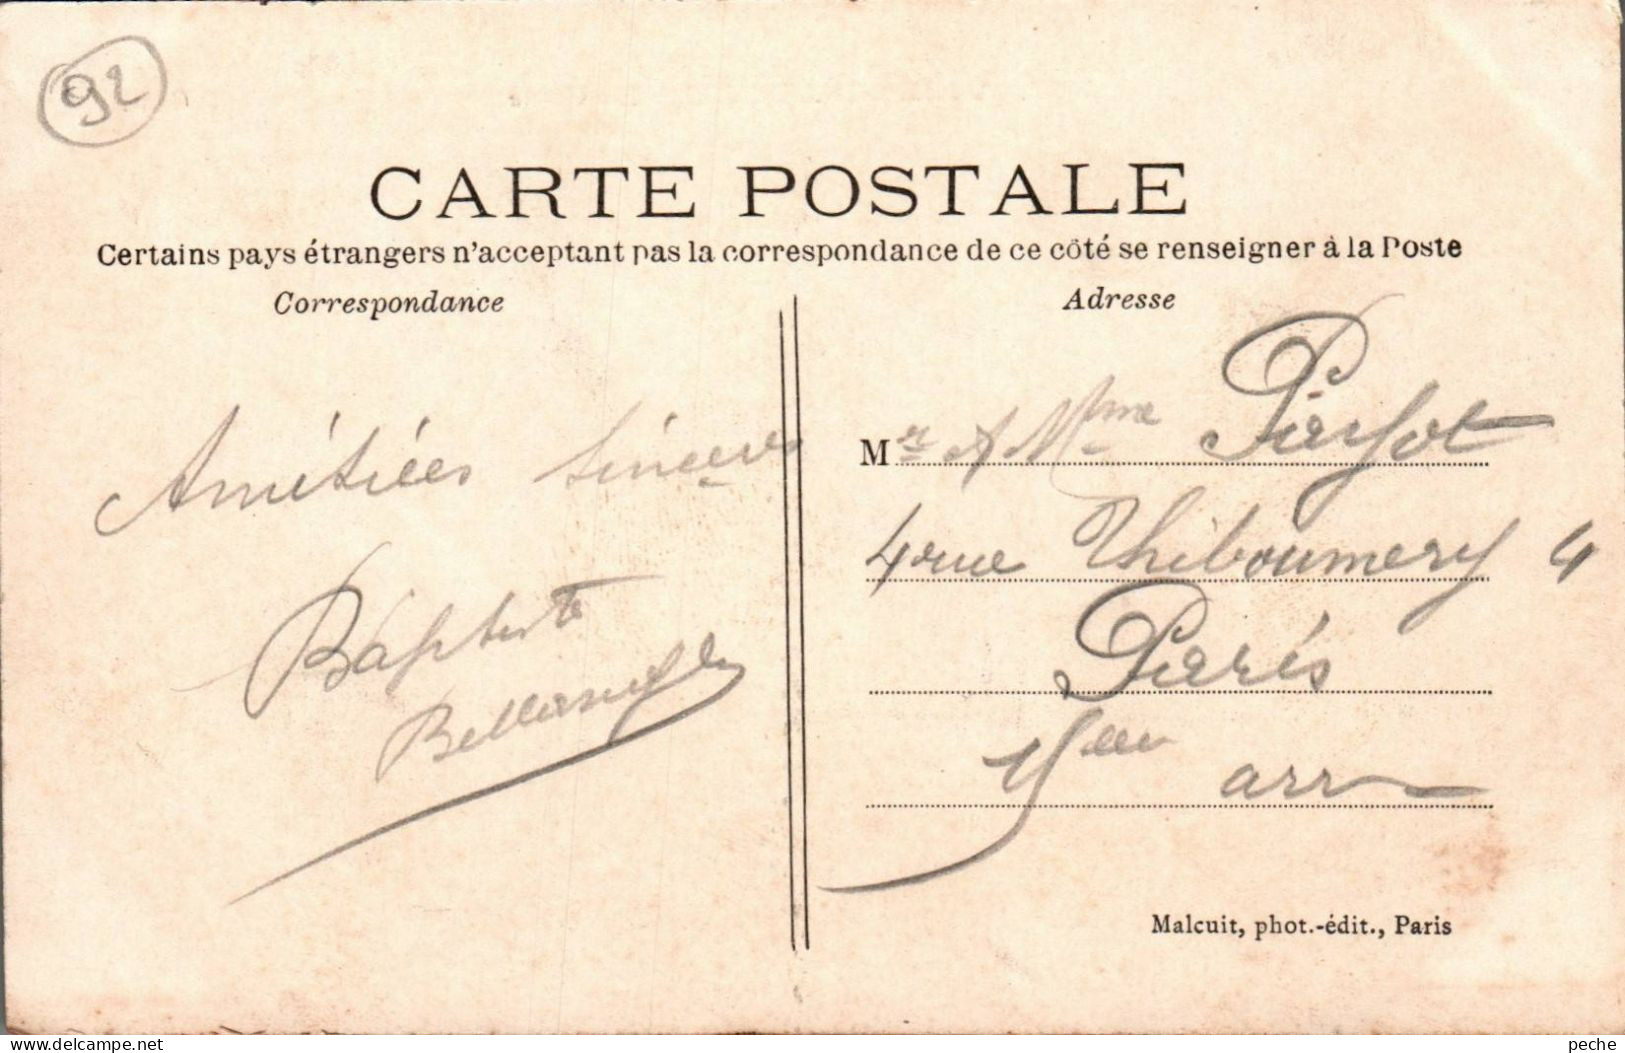 92
CARTE POSTALE
Certains pays étrangers n'acceptant pas la correspondance de ce côté se renseigner à la Poste
Correspondance
Adresse
Amitiées sincères
Baptiste
M
Mme
4 rue Thiboumery 4
Paris
15eme arr
Malcuit, phot.-édit., Paris
www.delcampe.net
peche